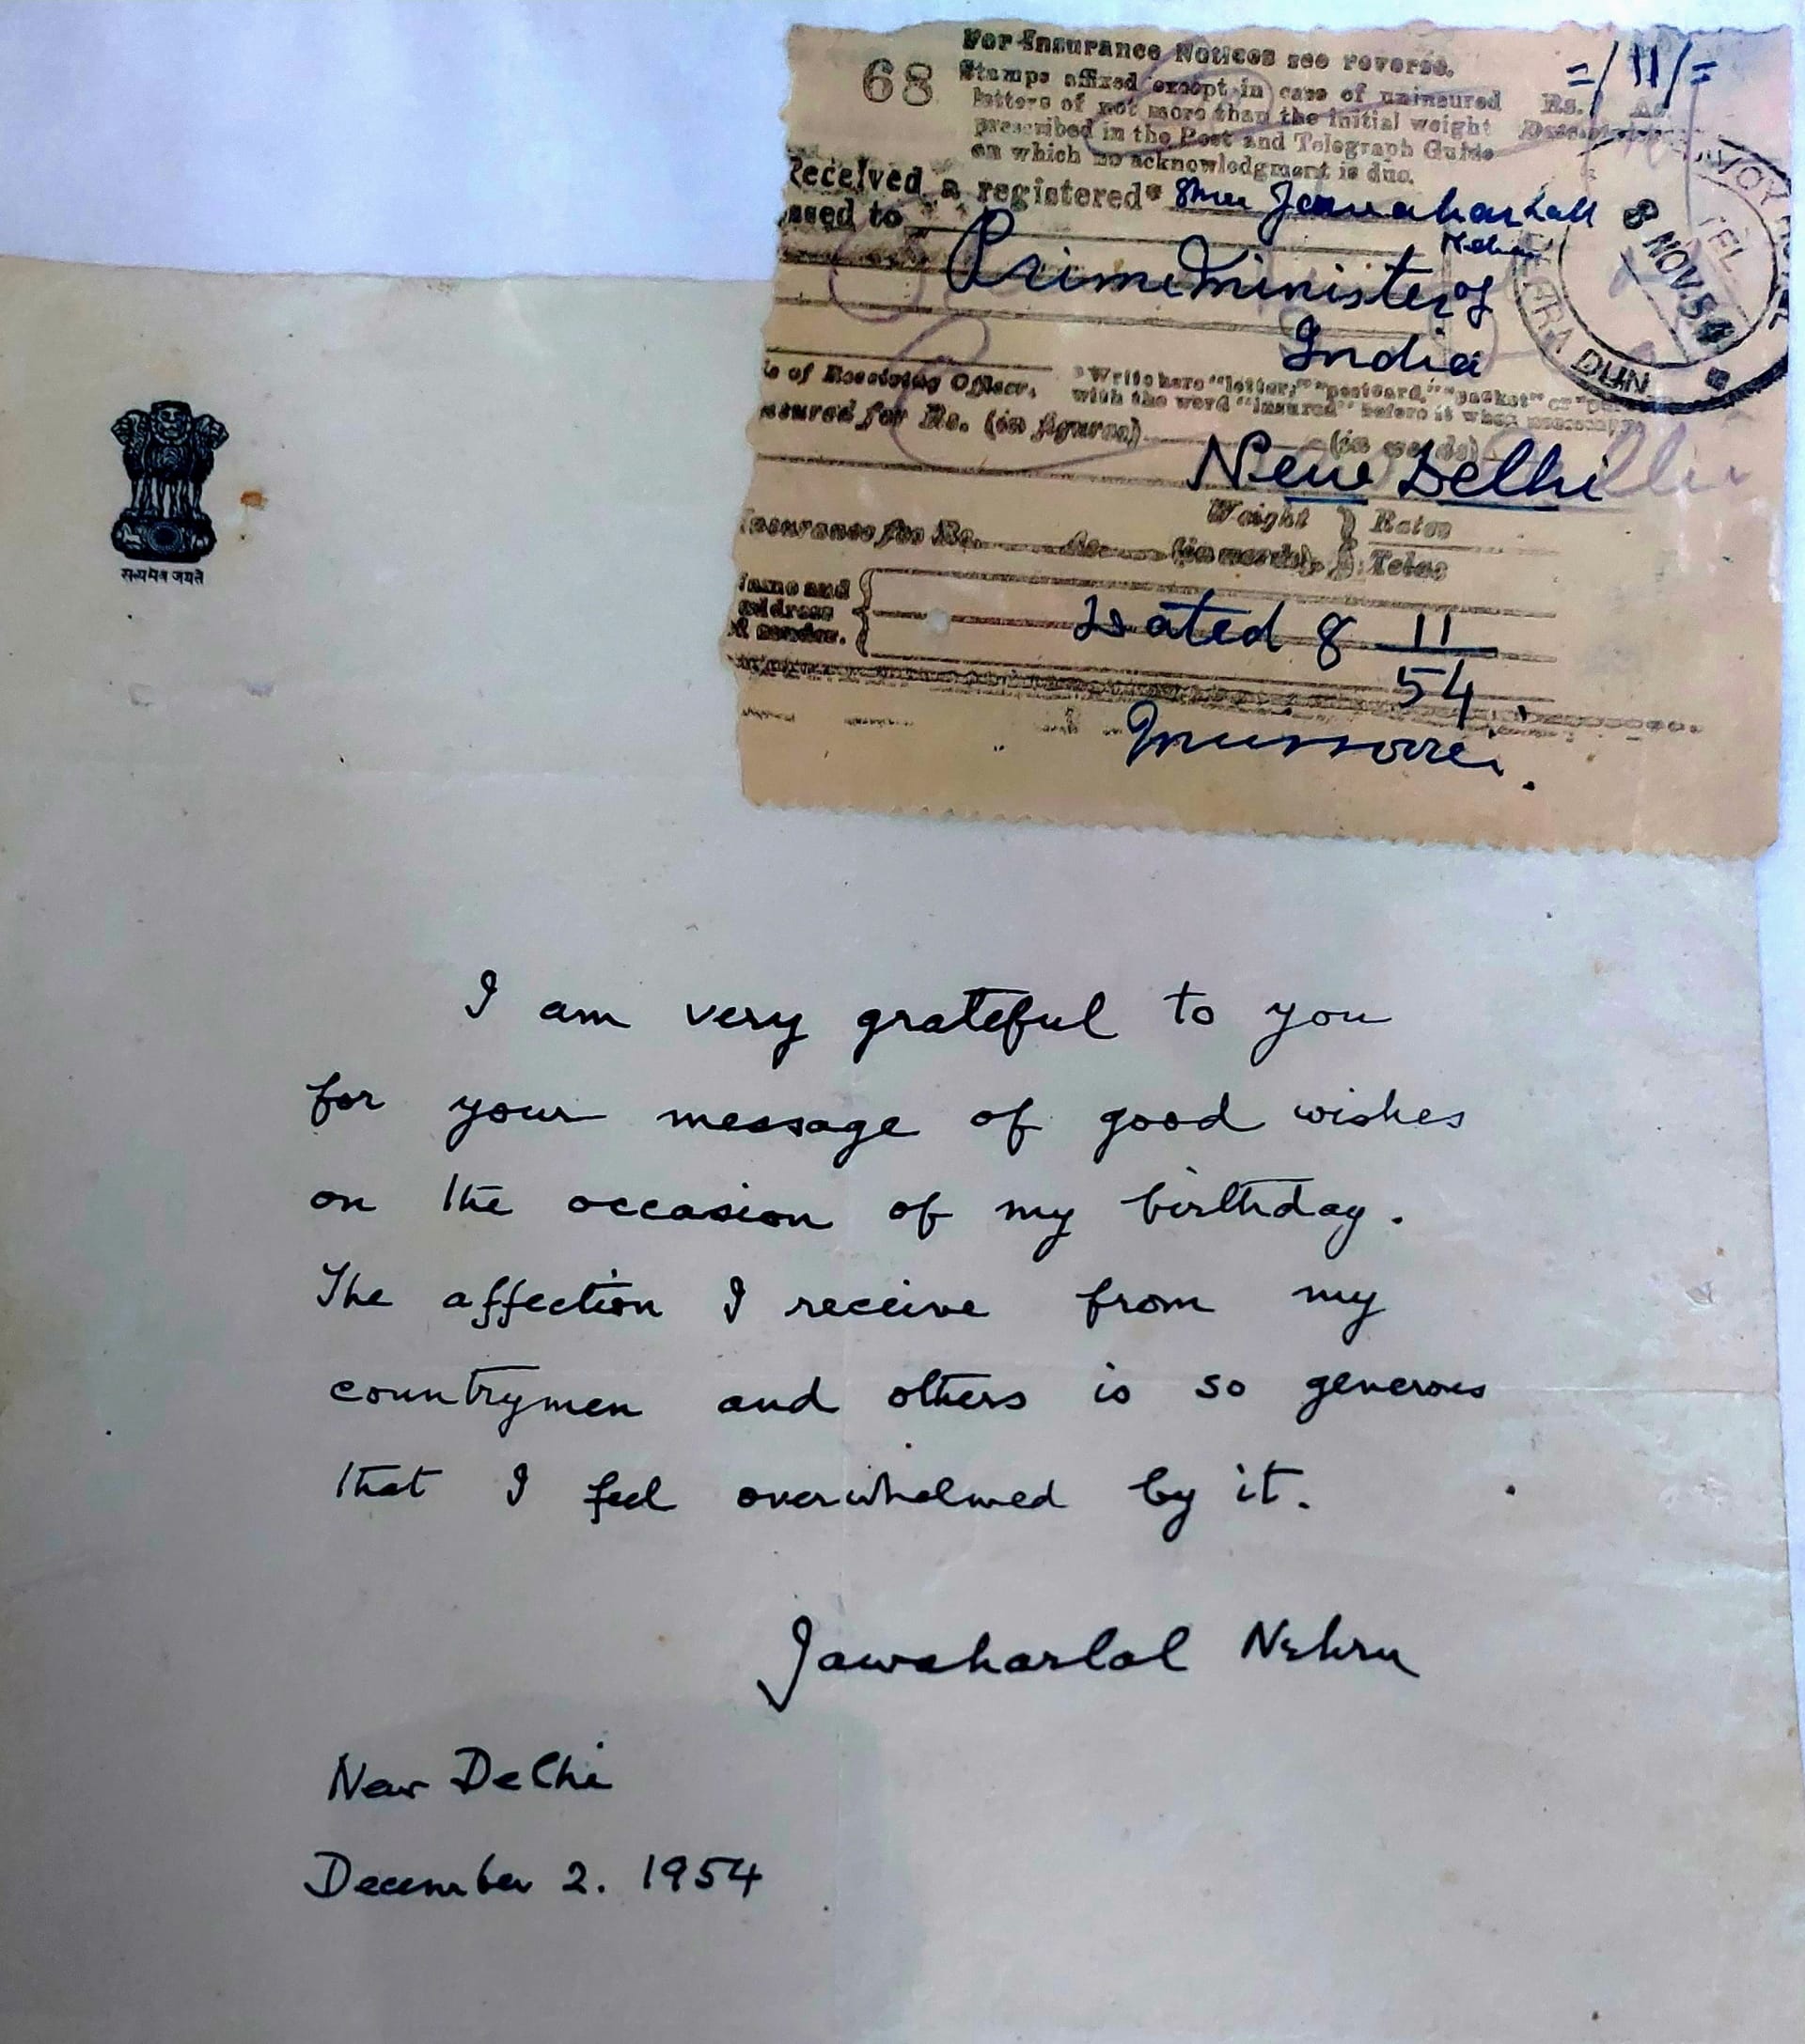 68
For Insurance Notices see reverse.
Stamps affixed except in case of uninsured
letters of not more than the initial weight
prescribed in the Post and Telegraph Guide
on which no acknowledgment is due.
=/11/=
Rs. As
Received a registered* Shri Jawahar Lall
Nehru
ssed to
Prime Minister of
India
SAVOY HOTEL
TEL
8 NOV. 54
DEHRA DUN
e of Receiving Officer.
*Write here "letter," "postcard," "packet" or "par
with the word "insured" before it when necessary.
nsured for Rs. (in figures) (in words)
New Delhi
Weight
Insurance fee Rs. As. (in words)
Rates
Tolas
Name and
address
of sender.
Dated 8 11
54.
Mussoorie.
सत्यमेव जयते
I am very grateful to you
for your message of good wishes
on the occasion of my birthday.
The affection I receive from my
countrymen and others is so generous
that I feel overwhelmed by it.
Jawaharlal Nehru
New Delhi
December 2. 1954